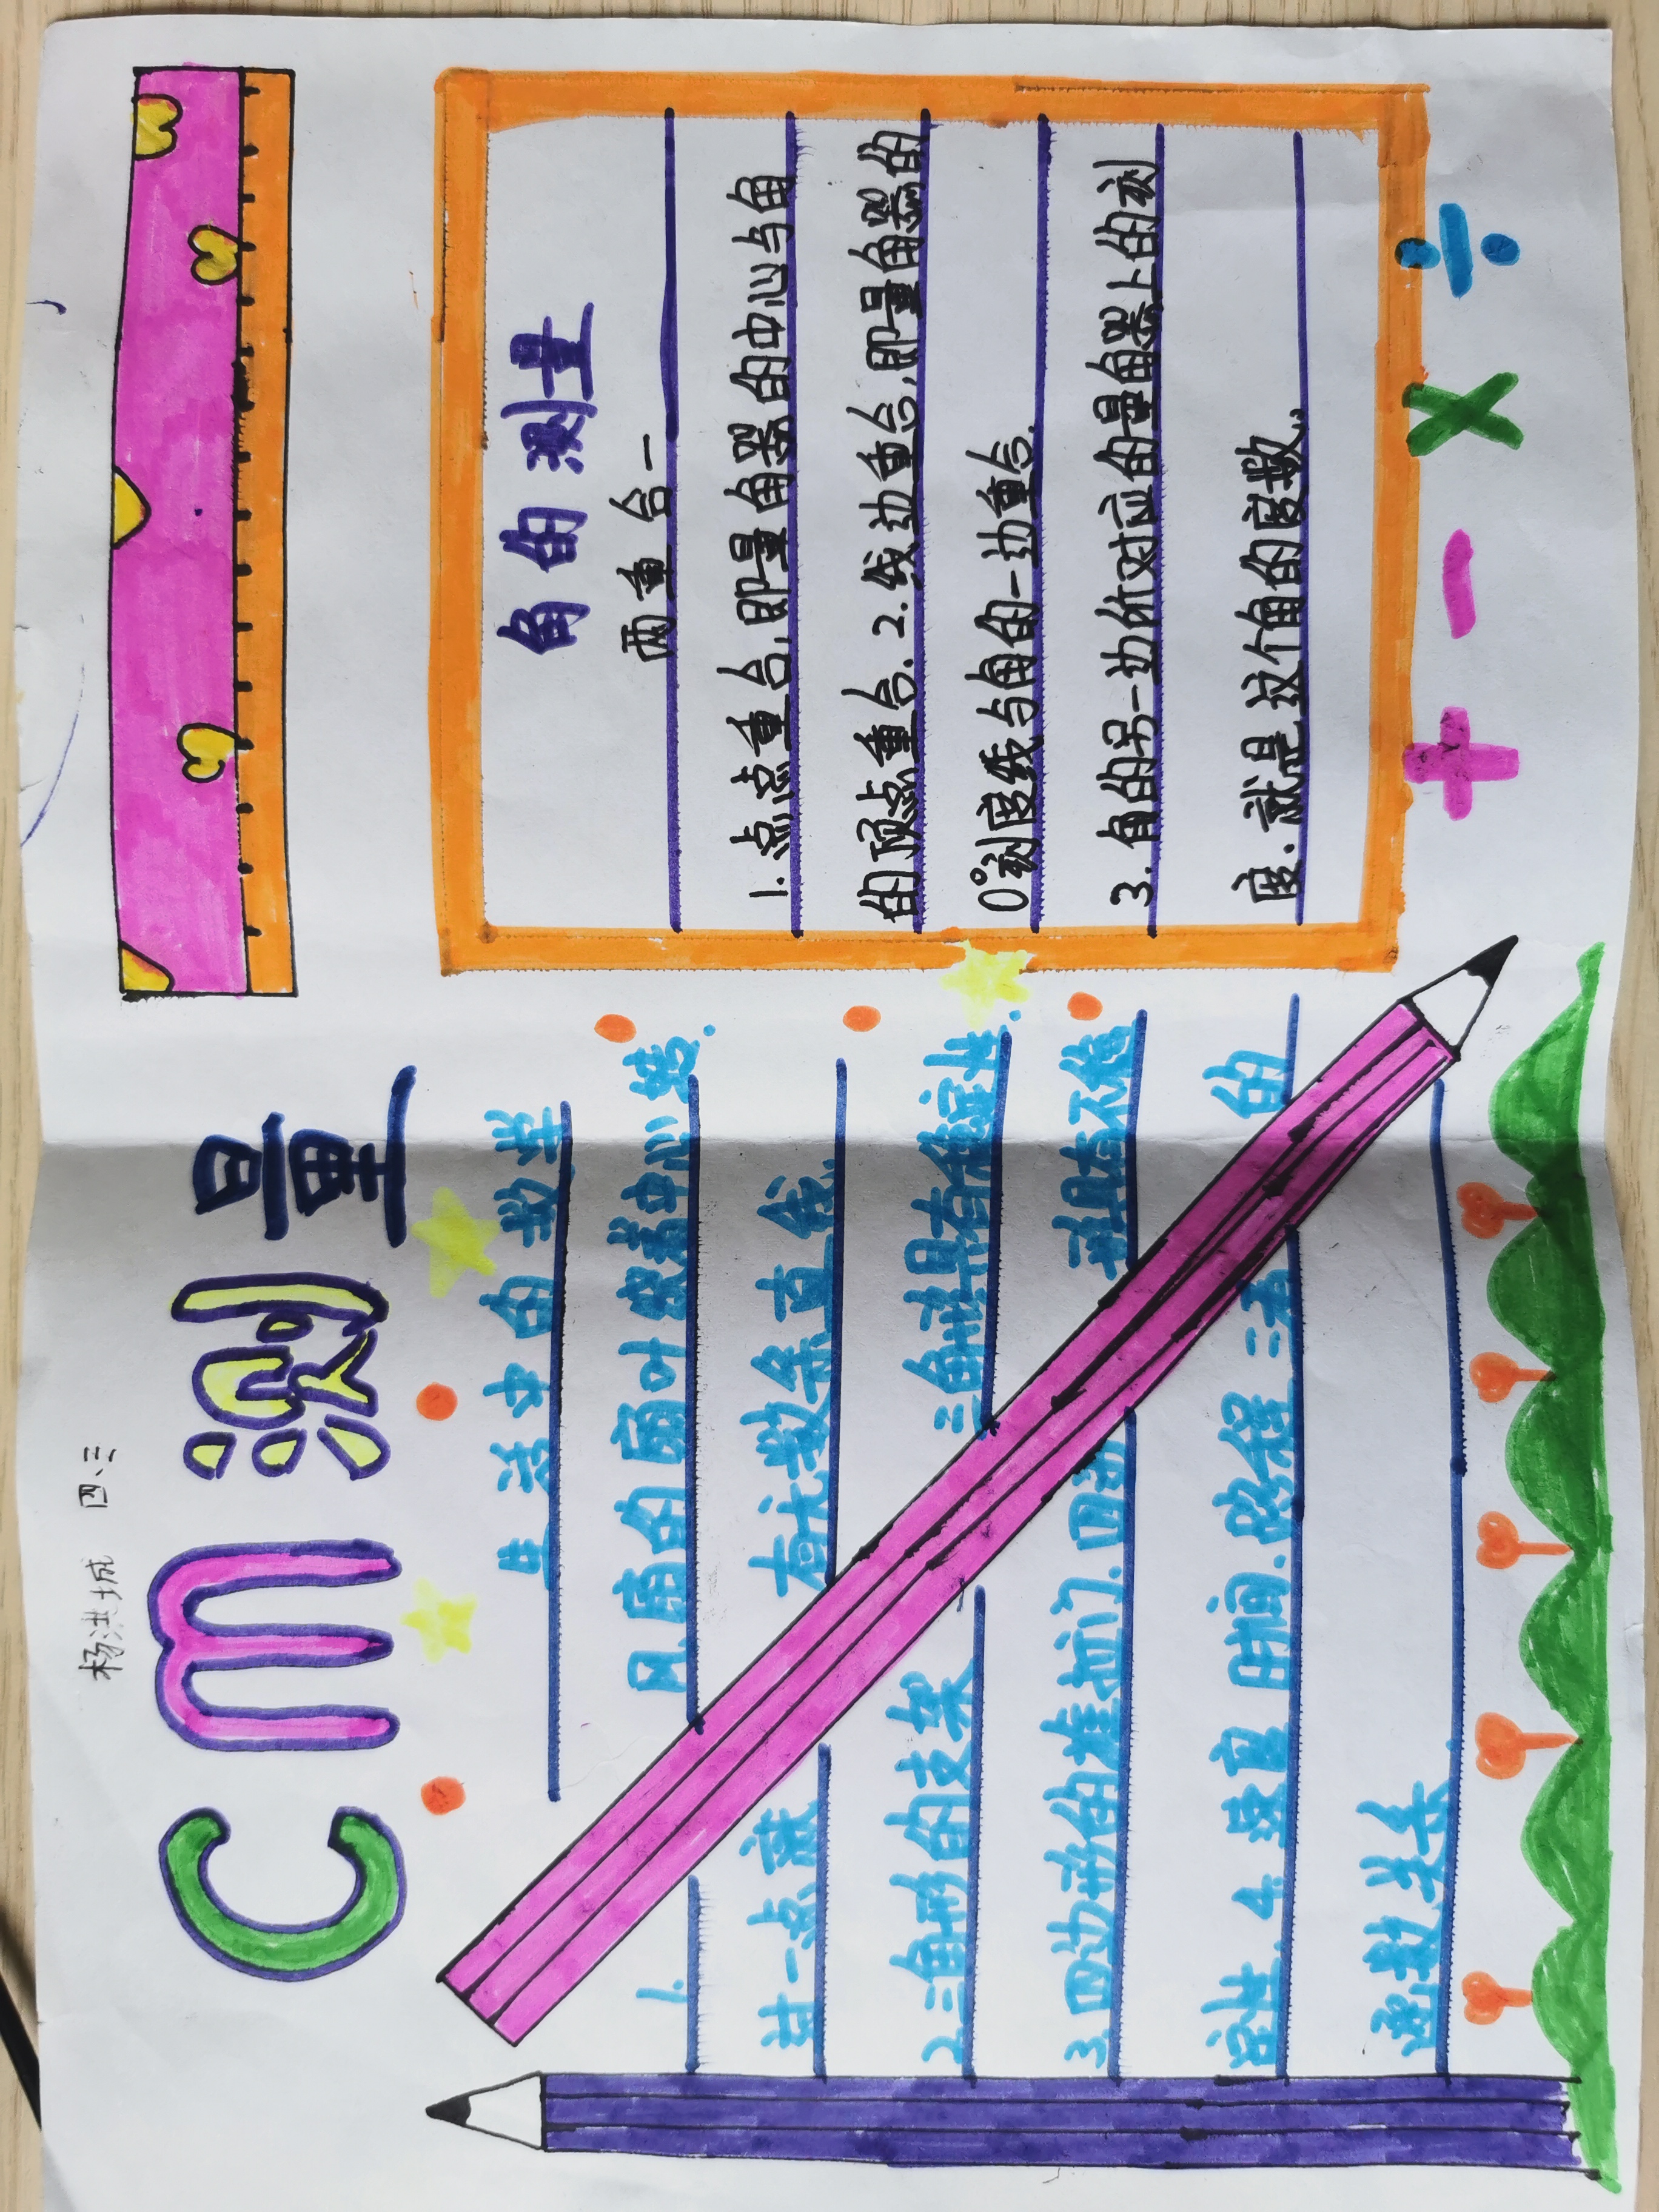 杨洪城 四、三
Cm测量
生活中的数学
1. 风扇的扇叶绕着中心
过一点 有无数条直线.
2.三角形的支架 三角形具有稳定性.
3.四边形的推拉门.四边形具有不稳
定性. 4.速度 时间.路程 三者 的
函数关系.
角的测量
两重合一
1.点点重合,即量角器的中心与角
的顶点重合. 2.线边重合,即量角器的
0°刻度线与角的一边重合.
3.角的另一边所对应的量角器上的刻
度.就是这个角的度数.
+ - × ÷